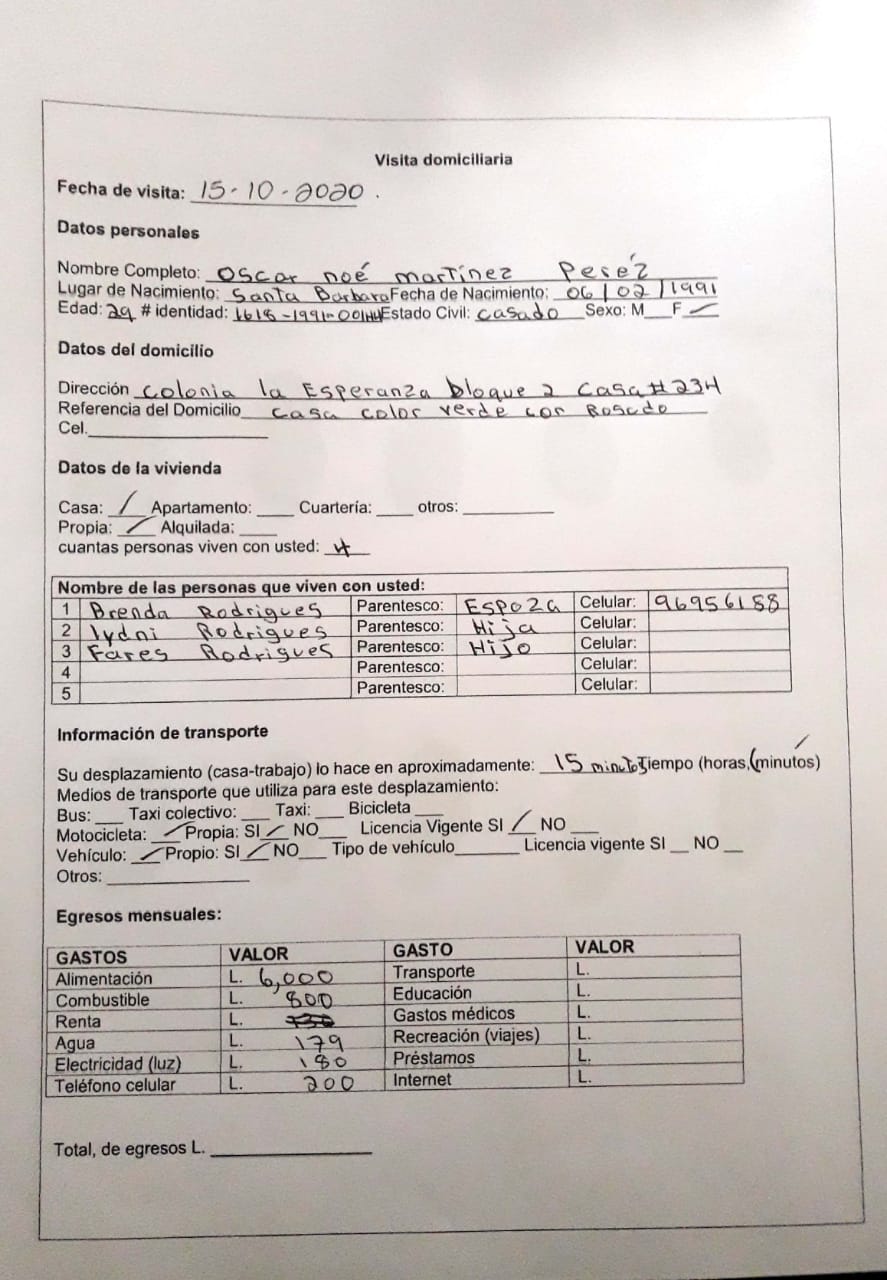 Visita domiciliaria
Fecha de visita: 15-10-2020.
Datos personales
Nombre Completo: Oscar noé martínez Peréz
Lugar de Nacimiento: Santa Barbara Fecha de Nacimiento: 06/02/1991
Edad: 29 # identidad: 1618-1991-00144 Estado Civil: casado Sexo: M___ F ✓
Datos del domicilio
Dirección colonia la Esperanza bloque 2 casa #234
Referencia del Domicilio casa color verde con Rosado
Cel.____________________
Datos de la vivienda
Casa: / Apartamento: ____ Cuartería: ____ otros: __________
Propia: ✓ Alquilada: ____
cuantas personas viven con usted: 4
Nombre de las personas que viven con usted:
1 Brenda Rodrigues Parentesco: Espoza Celular: 96956158
2 Iydni Rodrigues Parentesco: Hija Celular:
3 Fares Rodrigues Parentesco: Hijo Celular:
4 Parentesco: Celular:
5 Parentesco: Celular:
Información de transporte
Su desplazamiento (casa-trabajo) lo hace en aproximadamente: 15 minutos Tiempo (horas, (minutos)
Medios de transporte que utiliza para este desplazamiento:
Bus: ___ Taxi colectivo: ___ Taxi: ___ Bicicleta ___
Motocicleta: ✓ Propia: SI ✓ NO___ Licencia Vigente SI / NO ___
Vehículo: ✓ Propio: SI ✓ NO___ Tipo de vehículo_______ Licencia vigente SI __ NO __
Otros: ________________
Egresos mensuales:
GASTOS VALOR GASTO VALOR
Alimentación L. 6,000 Transporte L.
Combustible L. 800 Educación L.
Renta L. Gastos médicos L.
Agua L. 179 Recreación (viajes) L.
Electricidad (luz) L. 180 Préstamos L.
Teléfono celular L. 200 Internet L.
Total, de egresos L. __________________